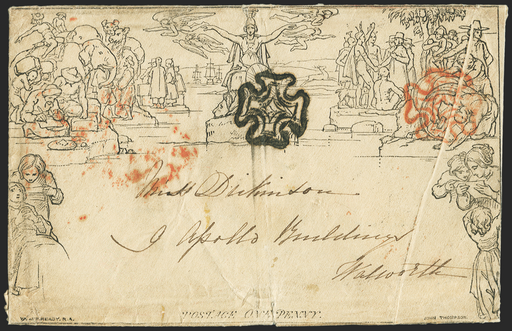 Miss Dickinson
9 Apollo Buildings
Walworth
W. MULREADY, R.A.
POSTAGE ONE PENNY.
JOHN THOMPSON